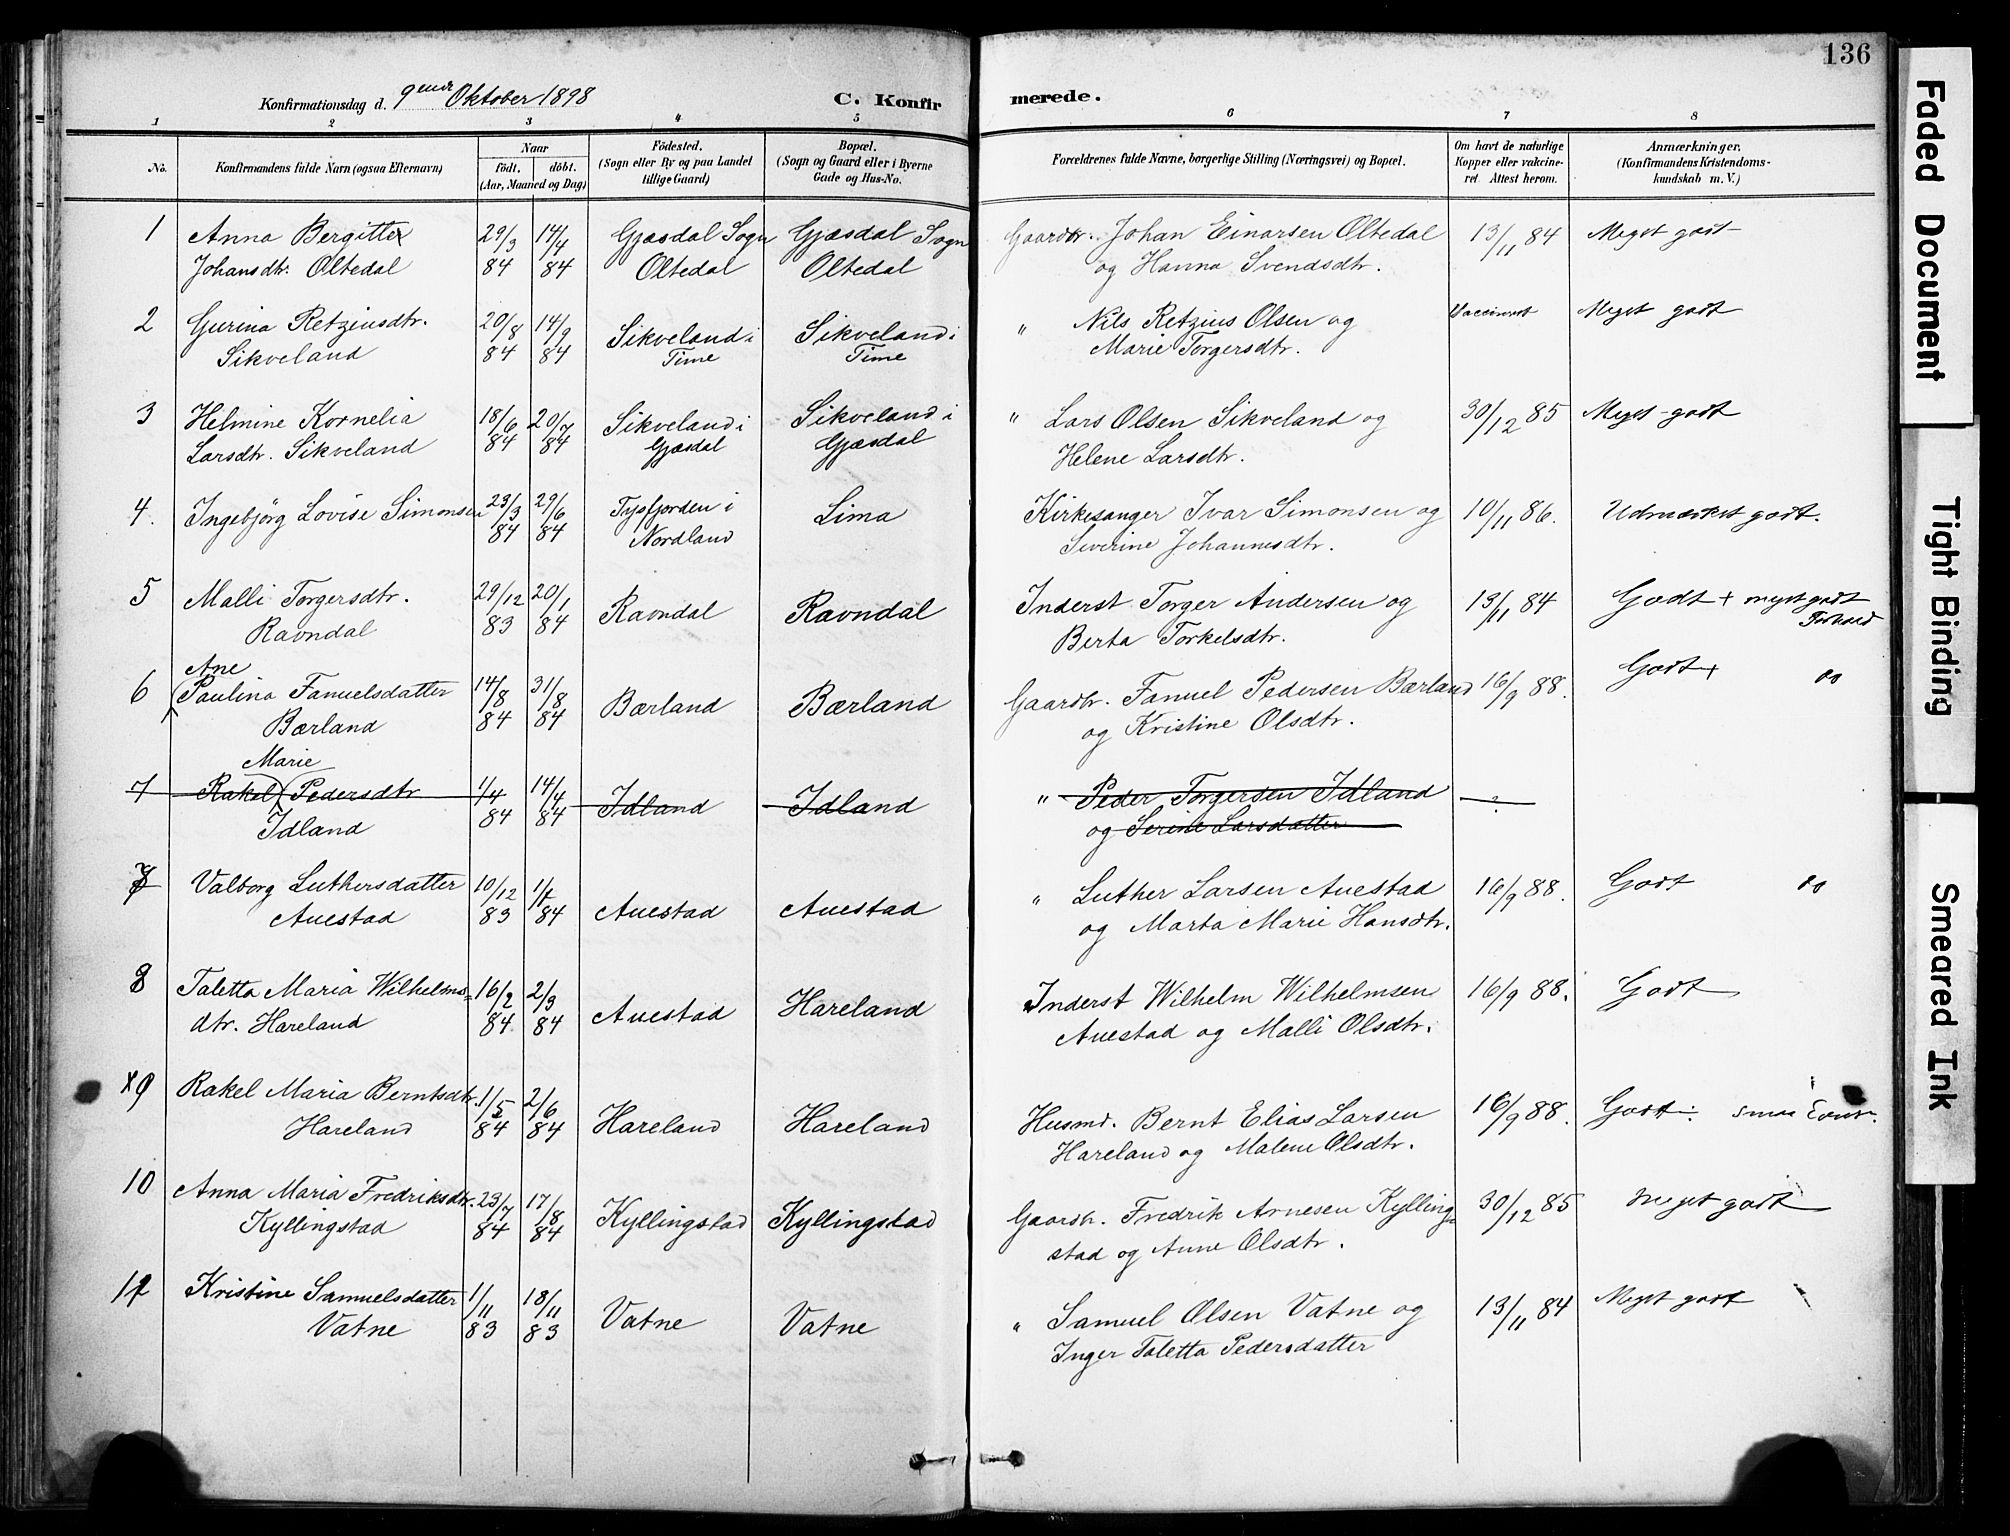 136
Konfirmationsdag d. 9ende Oktober 1898
C. Konfirmerede.
1 2 3 4 5 6 7 8
No.
Konfirmandens fulde Navn (ogsaa Efternavn)
Naar
født. døbt.
(Aar, Maaned og Dag)
Fødested.
(Sogn eller By og paa Landet
tillige Gaard)
Bopæl.
(Sogn og Gaard eller i Byerne
Gade og Hus-No.
Forældrenes fulde Navne, borgerlige Stilling (Næringsvei) og Bopæl.
Om havt de naturlige
Kopper eller vakcine-
ret. Attest herom.
Anmærkninger.
(Konfirmandens Kristendoms-
kundskab m. V.)
1 Anna Bergitte 29/3 14/4 Gjæsdal Sogn Gjæsdal Sogn Gaardbr. Johan Einarsen Oltedal 13/11 84 Meget godt
Johansdtr. Oltedal 84 84 Oltedal Oltedal og Hanna Svendsdtr.
2 Gurina Retziusdtr. 20/8 14/9 Sikveland i Sikveland i " Nils Retzius Olsen og Vaccineret Meget godt
Sikveland 84 84 Time Time Marie Torgersdtr.
3 Helmine Kornelia 18/6 20/7 Sikveland i Sikveland i " Lars Olsen Sikveland og 30/12 85 Meget godt
Larsdtr. Sikveland 84 84 Gjæsdal Gjæsdal Helene Larsdtr.
4. Ingebjörg Lovise Simonsen 23/3 29/6 Tysfjorden i Lima Kirkesanger Ivar Simonsen og 10/11 86. Udmærket godt.
84 84 Nordland Siverine Johannesdtr.
5 Malli Torgersdtr. 29/12 20/1 Ravndal Ravndal Inderst Torger Andersen og 13/11 84 Godt + meget godt
Ravndal 83 84 Berta Torkelsdtr. Forhold
Ane
6 Paulina Fanuelsdatter 14/8 31/8 Bærland Bærland Gaardbr. Fanuel Pedersen Bærland 16/9 88. Godt + do
Bærland 84 84 og Kristine Olsdtr.
Marie
7 Rakel Pedersdtr 1/4 14/4 Idland Idland " Peder Torgersen Idland ?
Idland 84 84 og Serine Larsdatter
7 Valborg Luthersdatter 10/12 1/1 Auestad Auestad " Luther Larsen Auestad 16/9 88. Godt do
Auestad 83 84 og Marta Marie Hansdtr.
8 Taletta Maria Wilhelms= 16/2 2/3 Auestad Hareland Inderst Wilhelm Wilhelmsen 16/9 88. Godt
dtr. Hareland 84 84 Auestad og Malli Olsdtr.
x9 Rakel Maria Berntsdtr. 1/5 2/6 Hareland Hareland Husmd. Bernt Elias Larsen 16/9 88. Godt ÷ smaa
Hareland 84 84 Hareland og Malene Olsdtr.
10 Anna Maria Fredriksdtr. 23/7 17/8 Kyllingstad Kyllingstad Gaardbr. Fredrik Arnesen Kylling= 30/12 85 Meget godt
Kyllingstad 84 84 stad og Anne Olsdtr.
11 Kristine Samuelsdatter 1/11 18/11 Vatne Vatne " Samuel Olsen Vatne og 13/11 84 Meget godt
Vatne 83 83 Inger Taletta Pedersdatter
Faded Document
Tight Binding
Smeared Ink